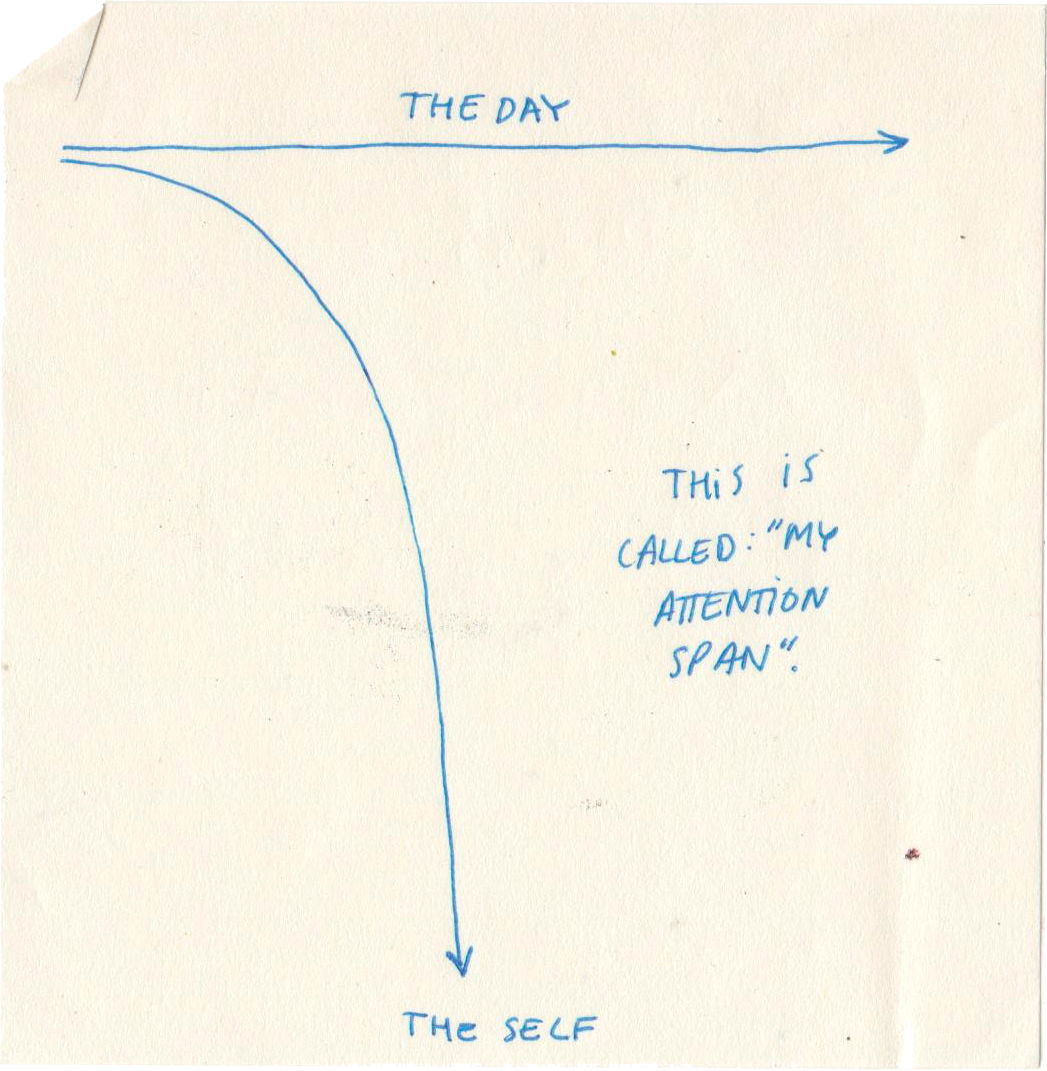 THE DAY
THiS iS
CALLED: "MY
ATTENTiON
SPAN".
THe SELF